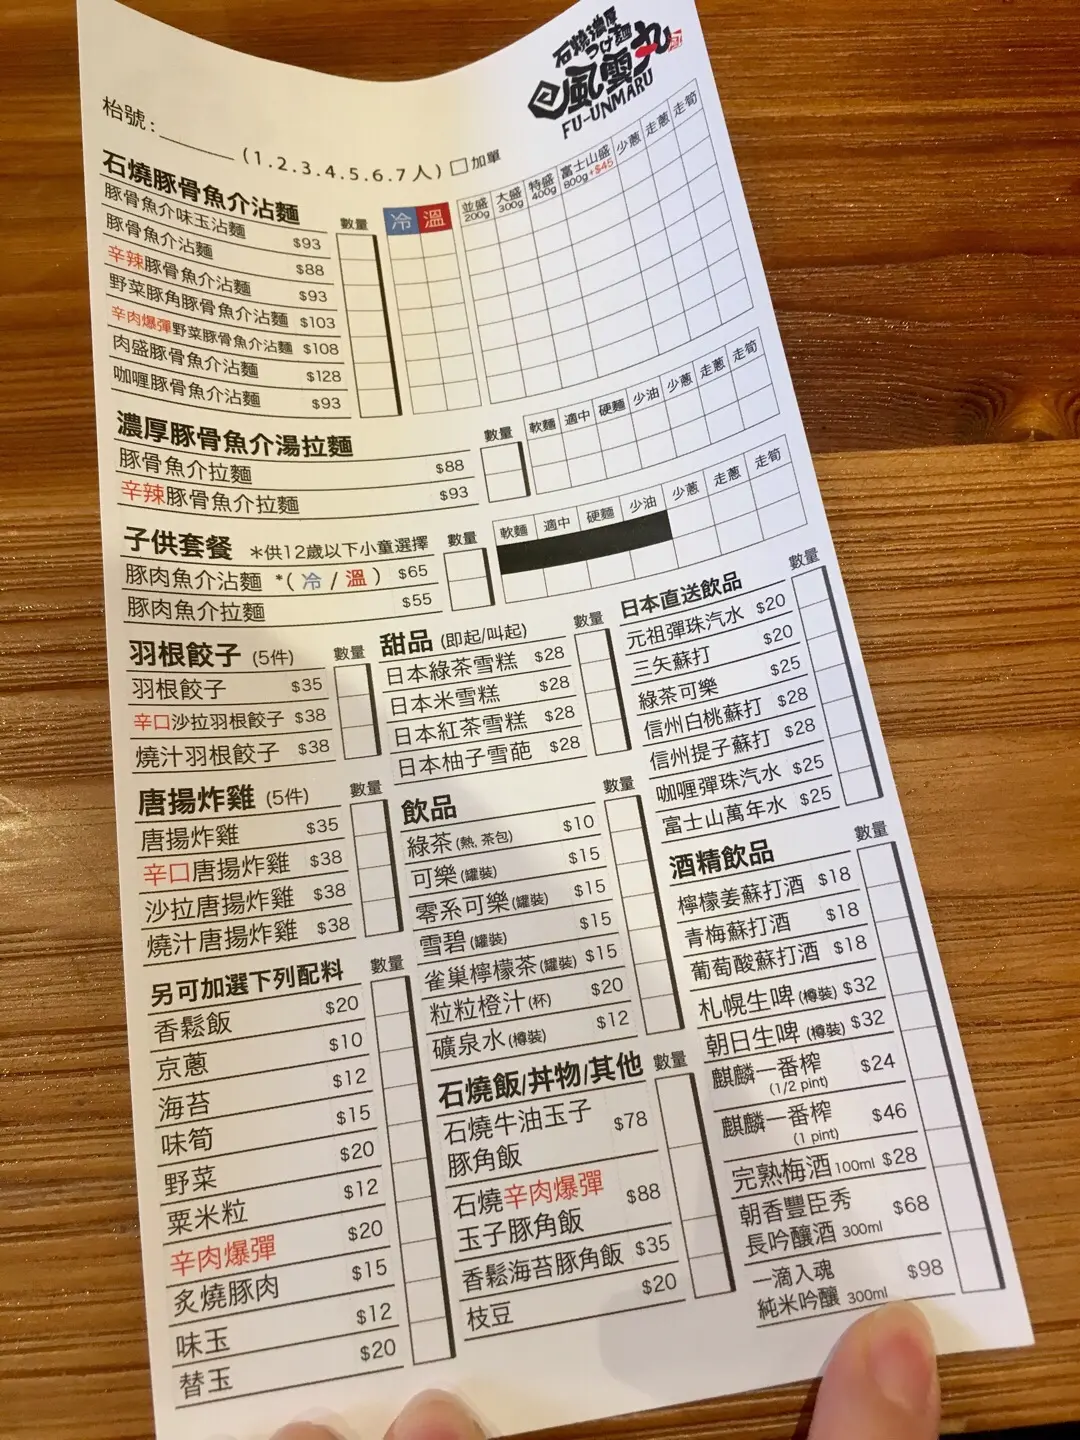 石燒濃厚
つけ麵
風雲丸
FU-UNMARU
枱號:
(1.2.3.4.5.6.7人) 加單
石燒豚骨魚介沾麵 數量 冷 溫 並盛200g 大盛300g 特盛400g 富士山盛800g+$45 少蔥 走蔥 走筍
豚骨魚介味玉沾麵 $93
豚骨魚介沾麵 $88
辛辣豚骨魚介沾麵 $93
野菜豚角豚骨魚介沾麵 $103
辛肉爆彈野菜豚骨魚介沾麵 $108
肉盛豚骨魚介沾麵 $128
咖喱豚骨魚介沾麵 $93
濃厚豚骨魚介湯拉麵 數量 軟麵 適中 硬麵 少油 少蔥 走蔥 走筍
豚骨魚介拉麵 $88
辛辣豚骨魚介拉麵 $93
子供套餐 *供12歲以下小童選擇 數量 軟麵 適中 硬麵 少油 少蔥 走蔥 走筍
豚肉魚介沾麵 *(冷/溫) $65
豚肉魚介拉麵 $55
羽根餃子 (5件) 數量
羽根餃子 $35
辛口沙拉羽根餃子 $38
燒汁羽根餃子 $38
唐揚炸雞 (5件) 數量
唐揚炸雞 $35
辛口唐揚炸雞 $38
沙拉唐揚炸雞 $38
燒汁唐揚炸雞 $38
另可加選下列配料 數量
香鬆飯 $20
京蔥 $10
海苔 $12
味筍 $15
野菜 $20
粟米粒 $12
辛肉爆彈 $20
炙燒豚肉 $15
味玉 $12
替玉 $20
甜品 (即起/叫起) 數量
日本綠茶雪糕 $28
日本米雪糕 $28
日本紅茶雪糕 $28
日本柚子雪葩 $28
飲品 數量
綠茶(熱, 茶包) $10
可樂(罐裝) $15
零系可樂(罐裝) $15
雪碧(罐裝) $15
雀巢檸檬茶(罐裝) $15
粒粒橙汁(杯) $20
礦泉水(樽裝) $12
石燒飯/丼物/其他 數量
石燒牛油玉子
豚角飯 $78
石燒辛肉爆彈
玉子豚角飯 $88
香鬆海苔豚角飯 $35
枝豆 $20
日本直送飲品 數量
元祖彈珠汽水 $20
三矢蘇打 $20
綠茶可樂 $25
信州白桃蘇打 $28
信州提子蘇打 $28
咖喱彈珠汽水 $25
富士山萬年水 $25
酒精飲品 數量
檸檬姜蘇打酒 $18
青梅蘇打酒 $18
葡萄酸蘇打酒 $18
札幌生啤(樽裝) $32
朝日生啤(樽裝) $32
麒麟一番榨
(1/2 pint) $24
麒麟一番榨
(1 pint) $46
完熟梅酒100ml $28
朝香豐臣秀
長吟釀酒 300ml $68
一滴入魂
純米吟釀 300ml $98